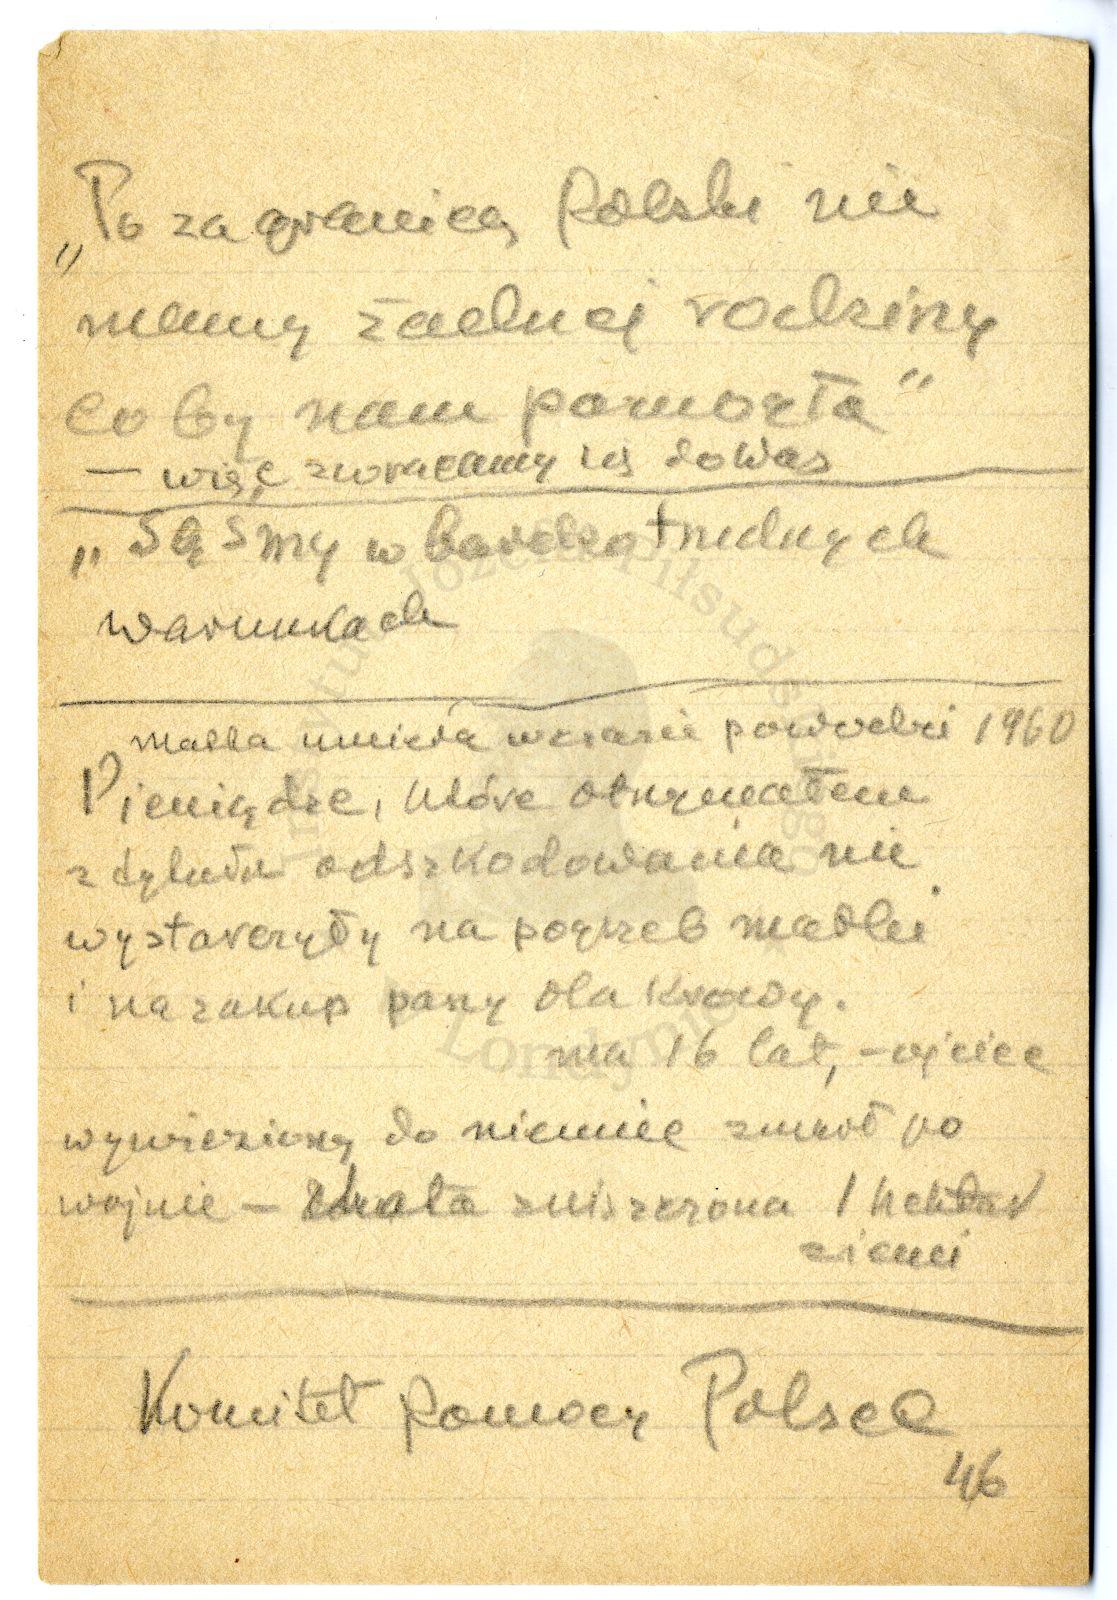 „Po za granicą Polski nie
mamy żadnej rodziny
co by nam pomogła”
— więc zwracamy się do Was
„Są śmy w bardzo trudnych
warunkach
matka umiera w czasie powodzi 1960
Pieniądze, które otrzymałem
z tytułu odszkodowania nie
wystarczyły na pogrzeb matki
i na zakup paszy dla krowy.
ma 16 lat, – ojciec
wywieziony do niemiec zmarł po
wojnie – chata zniszczona 1 hektar
ziemi
Komitet Pomocy Polsce
46
Instytut Józefa Piłsudskiego
Londynie